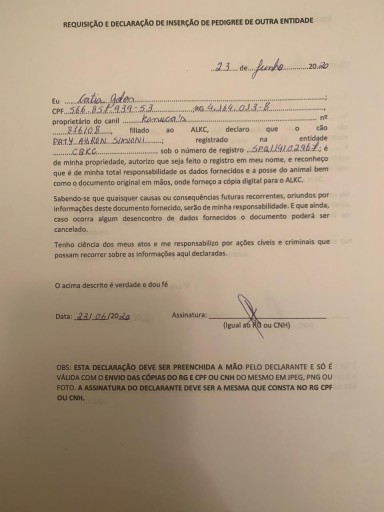 REQUISIÇÃO E DECLARAÇÃO DE INSERÇÃO DE PEDIGREE DE OUTRA ENTIDADE
23 de Junho 2020
Eu Katia
CPF RG
proprietário do canil nº
876/08, filiado ao ALKC, declaro que o cão
registrado na entidade
CBKC sob o número de registro é
de minha propriedade, autorizo que seja feito o registro em meu nome, e reconheço
que é de minha total responsabilidade os dados fornecidos e a posse do animal bem
como o documento original em mãos, onde forneço a cópia digital para o ALKC.
Sabendo-se que quaisquer causas ou consequências futuras recorrentes, oriundos por
informações deste documento fornecido, serão de minha responsabilidade. E que ainda,
caso ocorra algum desencontro de dados fornecidos o documento poderá ser
cancelado.
Tenho ciência dos meus atos e me responsabilizo por ações cíveis e criminais que
possam recorrer sobre as informações aqui declaradas.
O acima descrito é verdade e dou fé
Data: 23/06/2020 Assinatura:
(Igual ao RG ou CNH)
OBS: ESTA DECLARAÇÃO DEVE SER PREENCHIDA A MÃO PELO DECLARANTE E SÓ É
VÁLIDA COM O ENVIO DAS CÓPIAS DO RG E CPF OU CNH DO MESMO EM JPEG, PNG OU
FOTO. A ASSINATURA DO DECLARANTE DEVE SER A MESMA QUE CONSTA NO RG CPF
OU CNH.